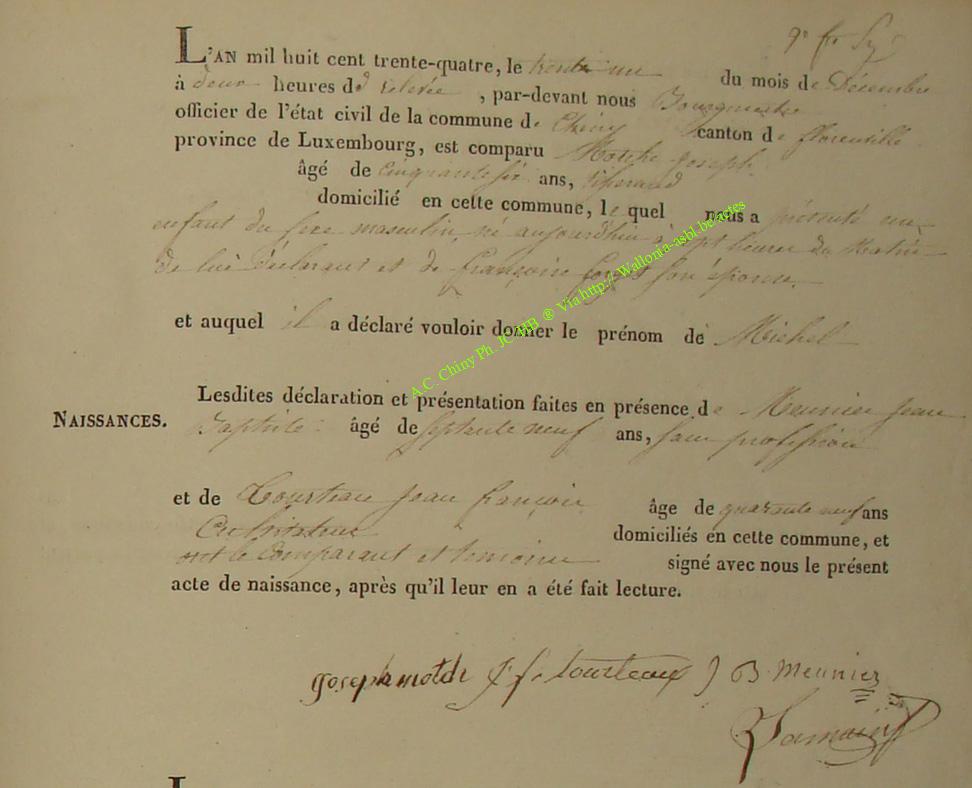 L'AN mil huit cent trente-quatre, le trente un du mois de Décembre
à deux heures de relevée, par-devant nous Bourgmestre
officier de l'état civil de la commune de Chiny canton de florenville
province de Luxembourg, est comparu Motche Joseph
âgé de cinquante six ans, tisserand
domicilié en cette commune, le quel nous a présenté un
enfant du sexe masculin, né aujourdhui à sept heures du Matin
de lui déclarant et de françoise son épouse
et auquel il a déclaré vouloir donner le prénom de Michel
Lesdites déclaration et présentation faites en présence de Meunier Jean
NAISSANCES.
Baptiste âgé de septante neuf ans, sans profession
et de Tourteau Jean françois âge de quarante neuf ans
Cultivateur domiciliés en cette commune, et
ont le Comparant et temoins signé avec nous le présent
acte de naissance, après qu'il leur en a été fait lecture.
joseph motch J f. tourteaux J B. Meunier
A.C. Chiny Ph. JC HB ® Via http://Wallonia-asbl.be/actes